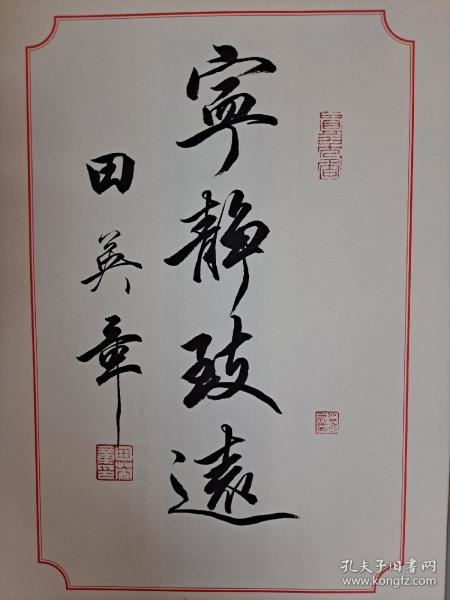 寧静致遠
田英章
孔夫子旧书网
www.kongfz.com